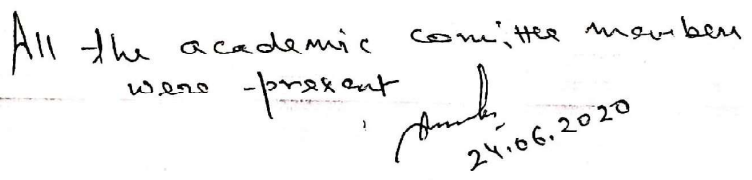 All the academic comittee members
were present
24.06.2020